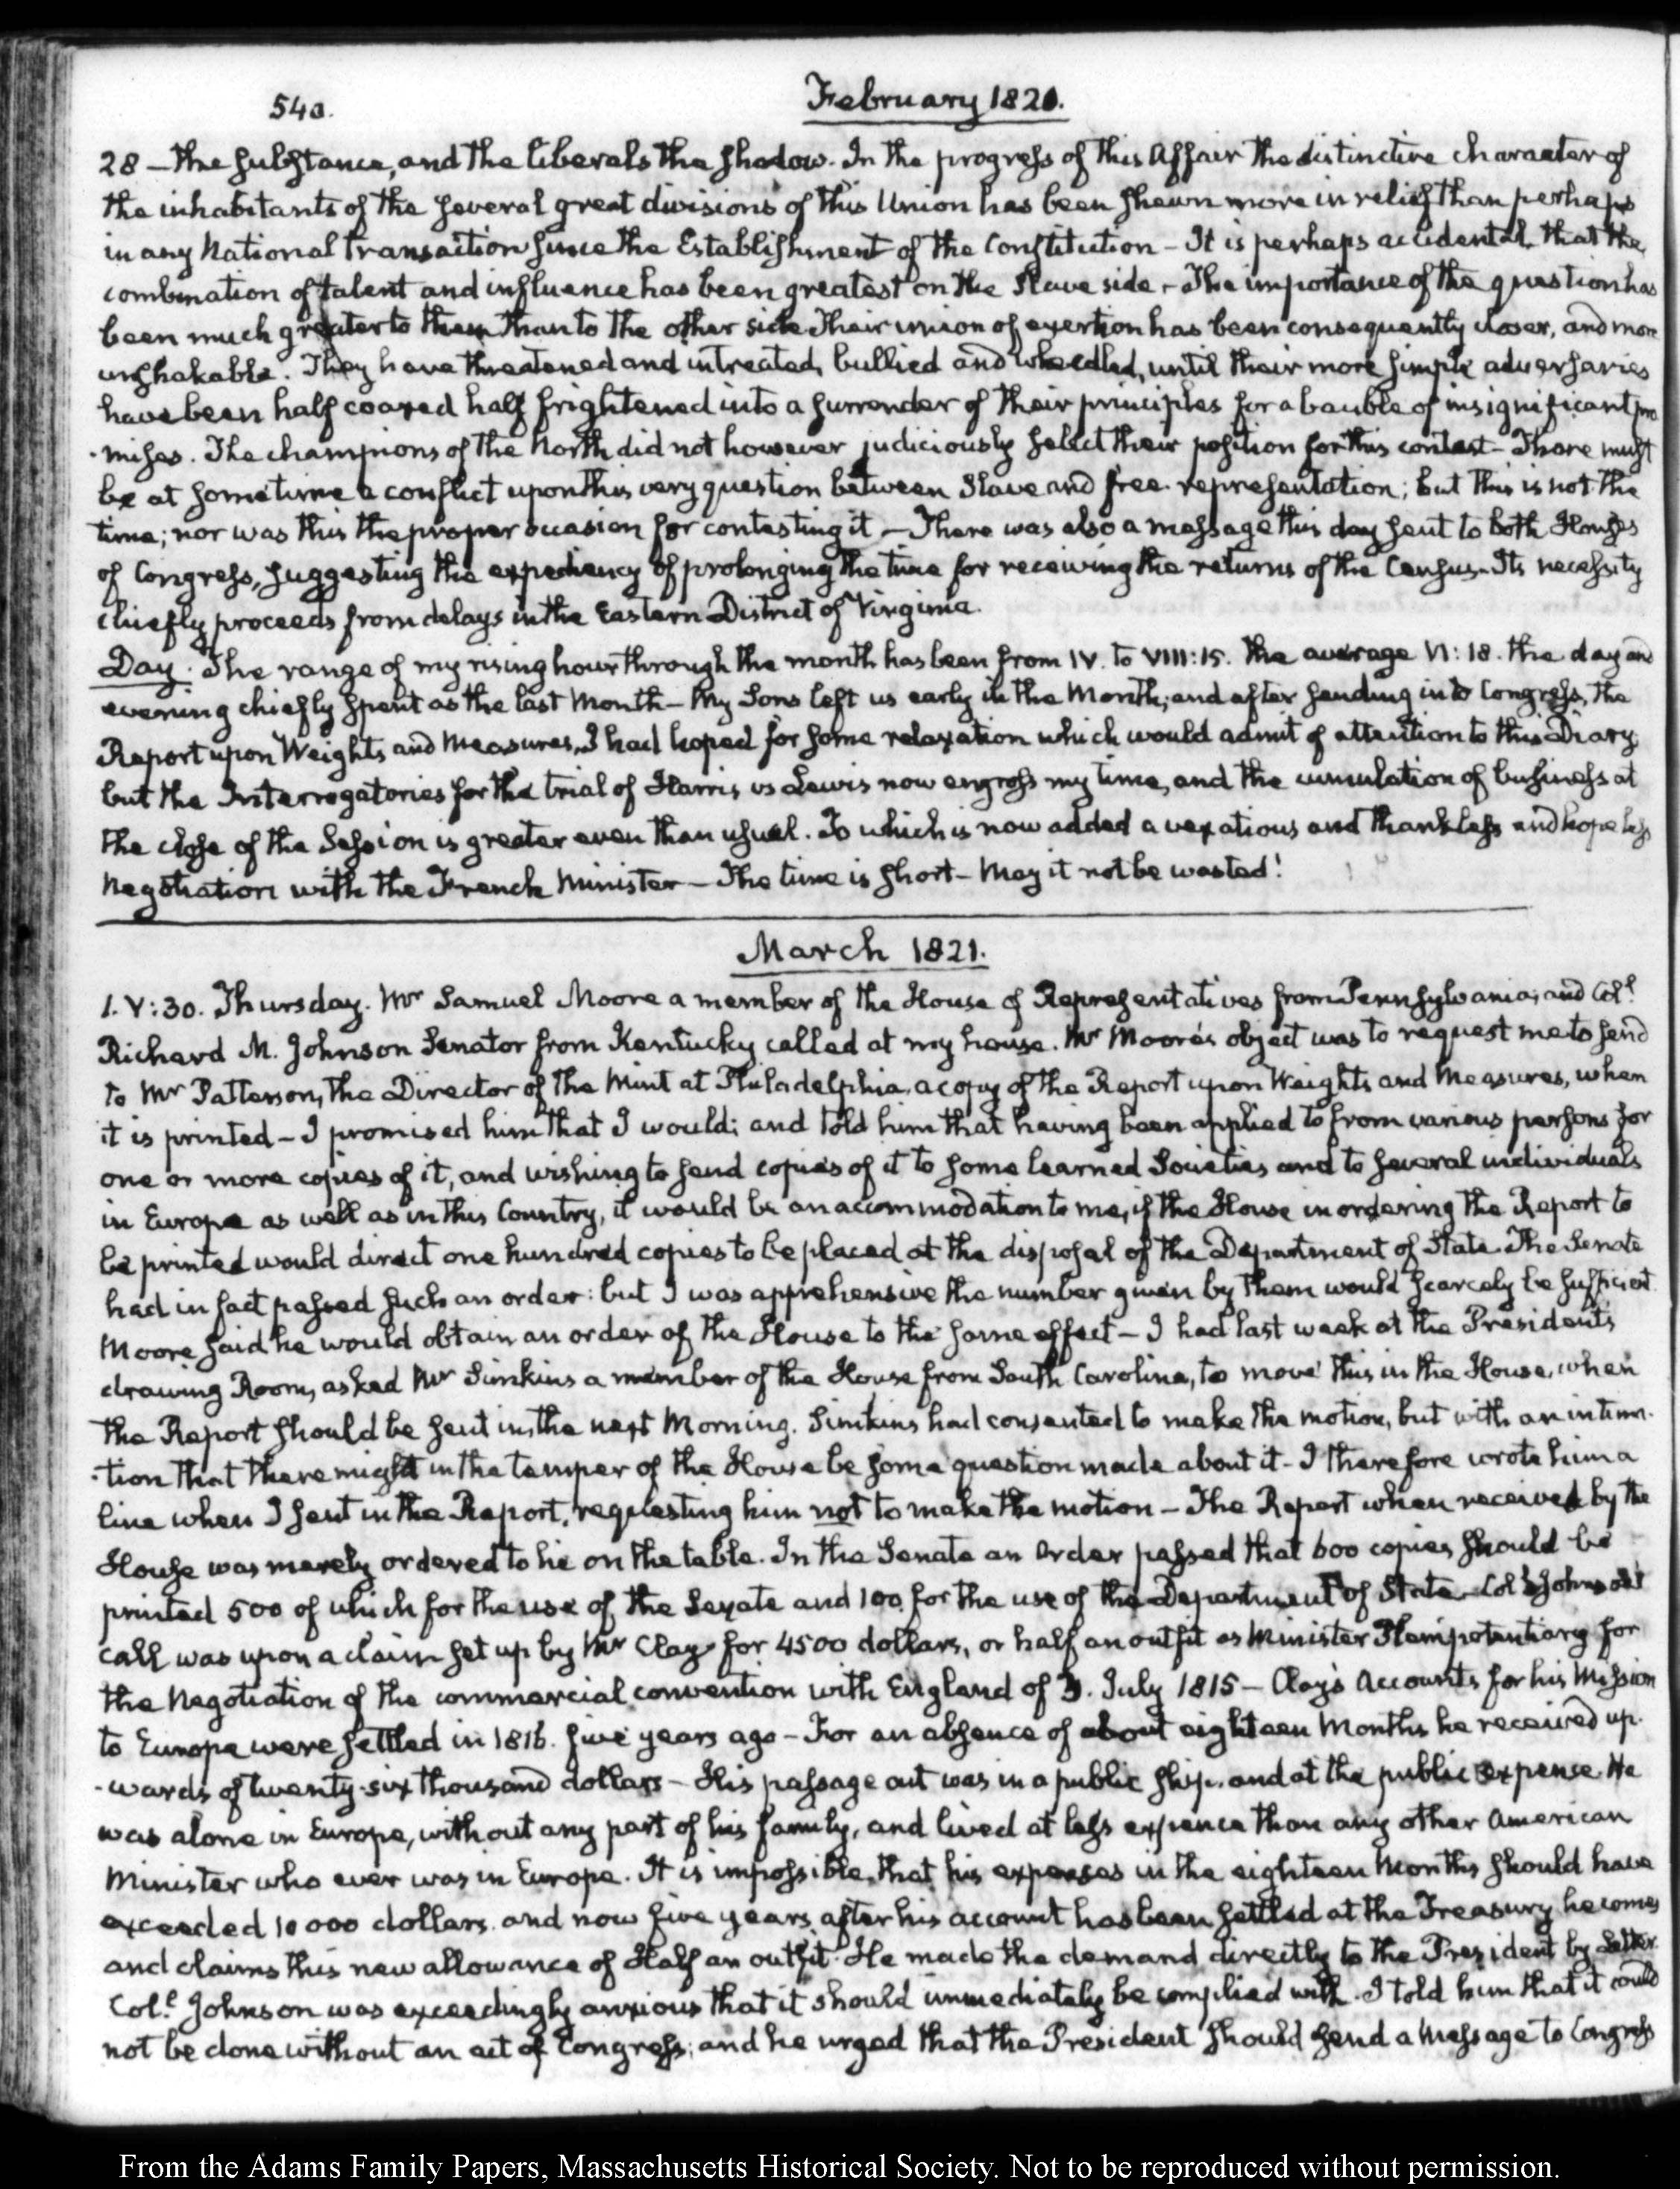 540.
February 1821.
28 – the substance, and the liberals the shadow. In the progress of this affair the distinctive character of
the inhabitants of the several great divisions of this Union has been shewn more in relief than perhaps
in any National transaction since the Establishment of the Constitution – It is perhaps accidental that the
combination of talent and influence has been greatest on the slave side – The importance of the question has
been much greater to them than to the other side Their union of exertion has been consequently closer, and more
unshakable. They have threatened and intreated, bullied and wheedled, until their more simple adversaries
have been half coaxed half frightened into a surrender of their principles for a bauble of insignificant pro
-mises. The champions of the North did not however judiciously select their position for this contest – There must
be at some time a conflict upon this very question between Slave and free representation; but this is not the
time; nor was this the proper occasion for contesting it – There was also a message this day sent to both Houses
of Congress, suggesting the expediency of prolonging the time for receiving the returns of the Census – Its necessity
chiefly proceeds from delays in the Eastern District of Virginia.
Day. The range of my rising hour through the month has been from IV. to VIII:15. the average VI:18. the day and
evening chiefly spent as the last Month – My Sons left us early in the Month; and after sending in to Congress, the
Report upon Weights and Measures, I had hoped for some relaxation which would admit of attention to this Diary
but the Interrogatories for the trial of Harris vs Lewis now engross my time, and the cumulation of business at
the close of the Session is greater even than usual. To which is now added a vexatious and thankless and hopeless
Negotiation with the French Minister – The time is short – May it not be wasted!
March 1821.
1. V:30. Thursday. Mr Samuel Moore a member of the House of Representatives from Pennsylvania, and Coll.
Richard M. Johnson Senator from Kentucky called at my house. Mr Moore's object was to request me to send
to Mr Patterson, the Director of the Mint at Philadelphia, a copy of the Report upon Weights and Measures, when
it is printed – I promised him that I would; and told him that having been applied to from various persons for
one or more copies of it, and wishing to send copies of it to some learned Societies and to several individuals
in Europe as well as in this Country, it would be an accommodation to me, if the House in ordering the Report to
be printed would direct one hundred copies to be placed at the disposal of the Department of State. The Senate
had in fact passed such an order: but I was apprehensive the number given by them would scarcely be sufficient.
Moore said he would obtain an order of the House to the same effect – I had last week at the Presidents
drawing Room, asked Mr Simkins a member of the House from South Carolina, to move this in the House, when
the Report should be sent in, the next Morning. Simkins had consented to make the motion, but with an intima-
-tion that there might in the temper of the House be some question made about it – I therefore wrote him a
line when I sent in the Report, requesting him not to make the motion – The Report when received by the
House was merely ordered to lie on the table. In the Senate an Order passed that 600 copies should be
printed 500 of which for the use of the Senate and 100 for the use of the Department of State – Coll Johnson's
call was upon a claim set up by Mr Clay for 4500 dollars, or half an outfit as Minister Plenipotentiary for
the Negotiation of the commercial convention with England of 3. July 1815 – Clay's Accounts for his Mission
to Europe were settled in 1816. five years ago – For an absence of about eighteen Months he received up-
-wards of twenty-six thousand dollars – His passage out was in a public ship, and at the public expence. He
was alone in Europe, without any part of his family, and lived at less expence than any other American
Minister who ever was in Europe. It is impossible that his expenses in the eighteen Months should have
exceeded 10 000 dollars. and now five years after his account has been settled at the Treasury, he comes
and claims this new allowance of Half an outfit. He made the demand directly to the President by Letter.
Coll. Johnson was exceedingly anxious that it should immediately be complied with. I told him that it could
not be done without an act of Congress; and he urged that the President should send a Message to Congress
From the Adams Family Papers, Massachusetts Historical Society. Not to be reproduced without permission.